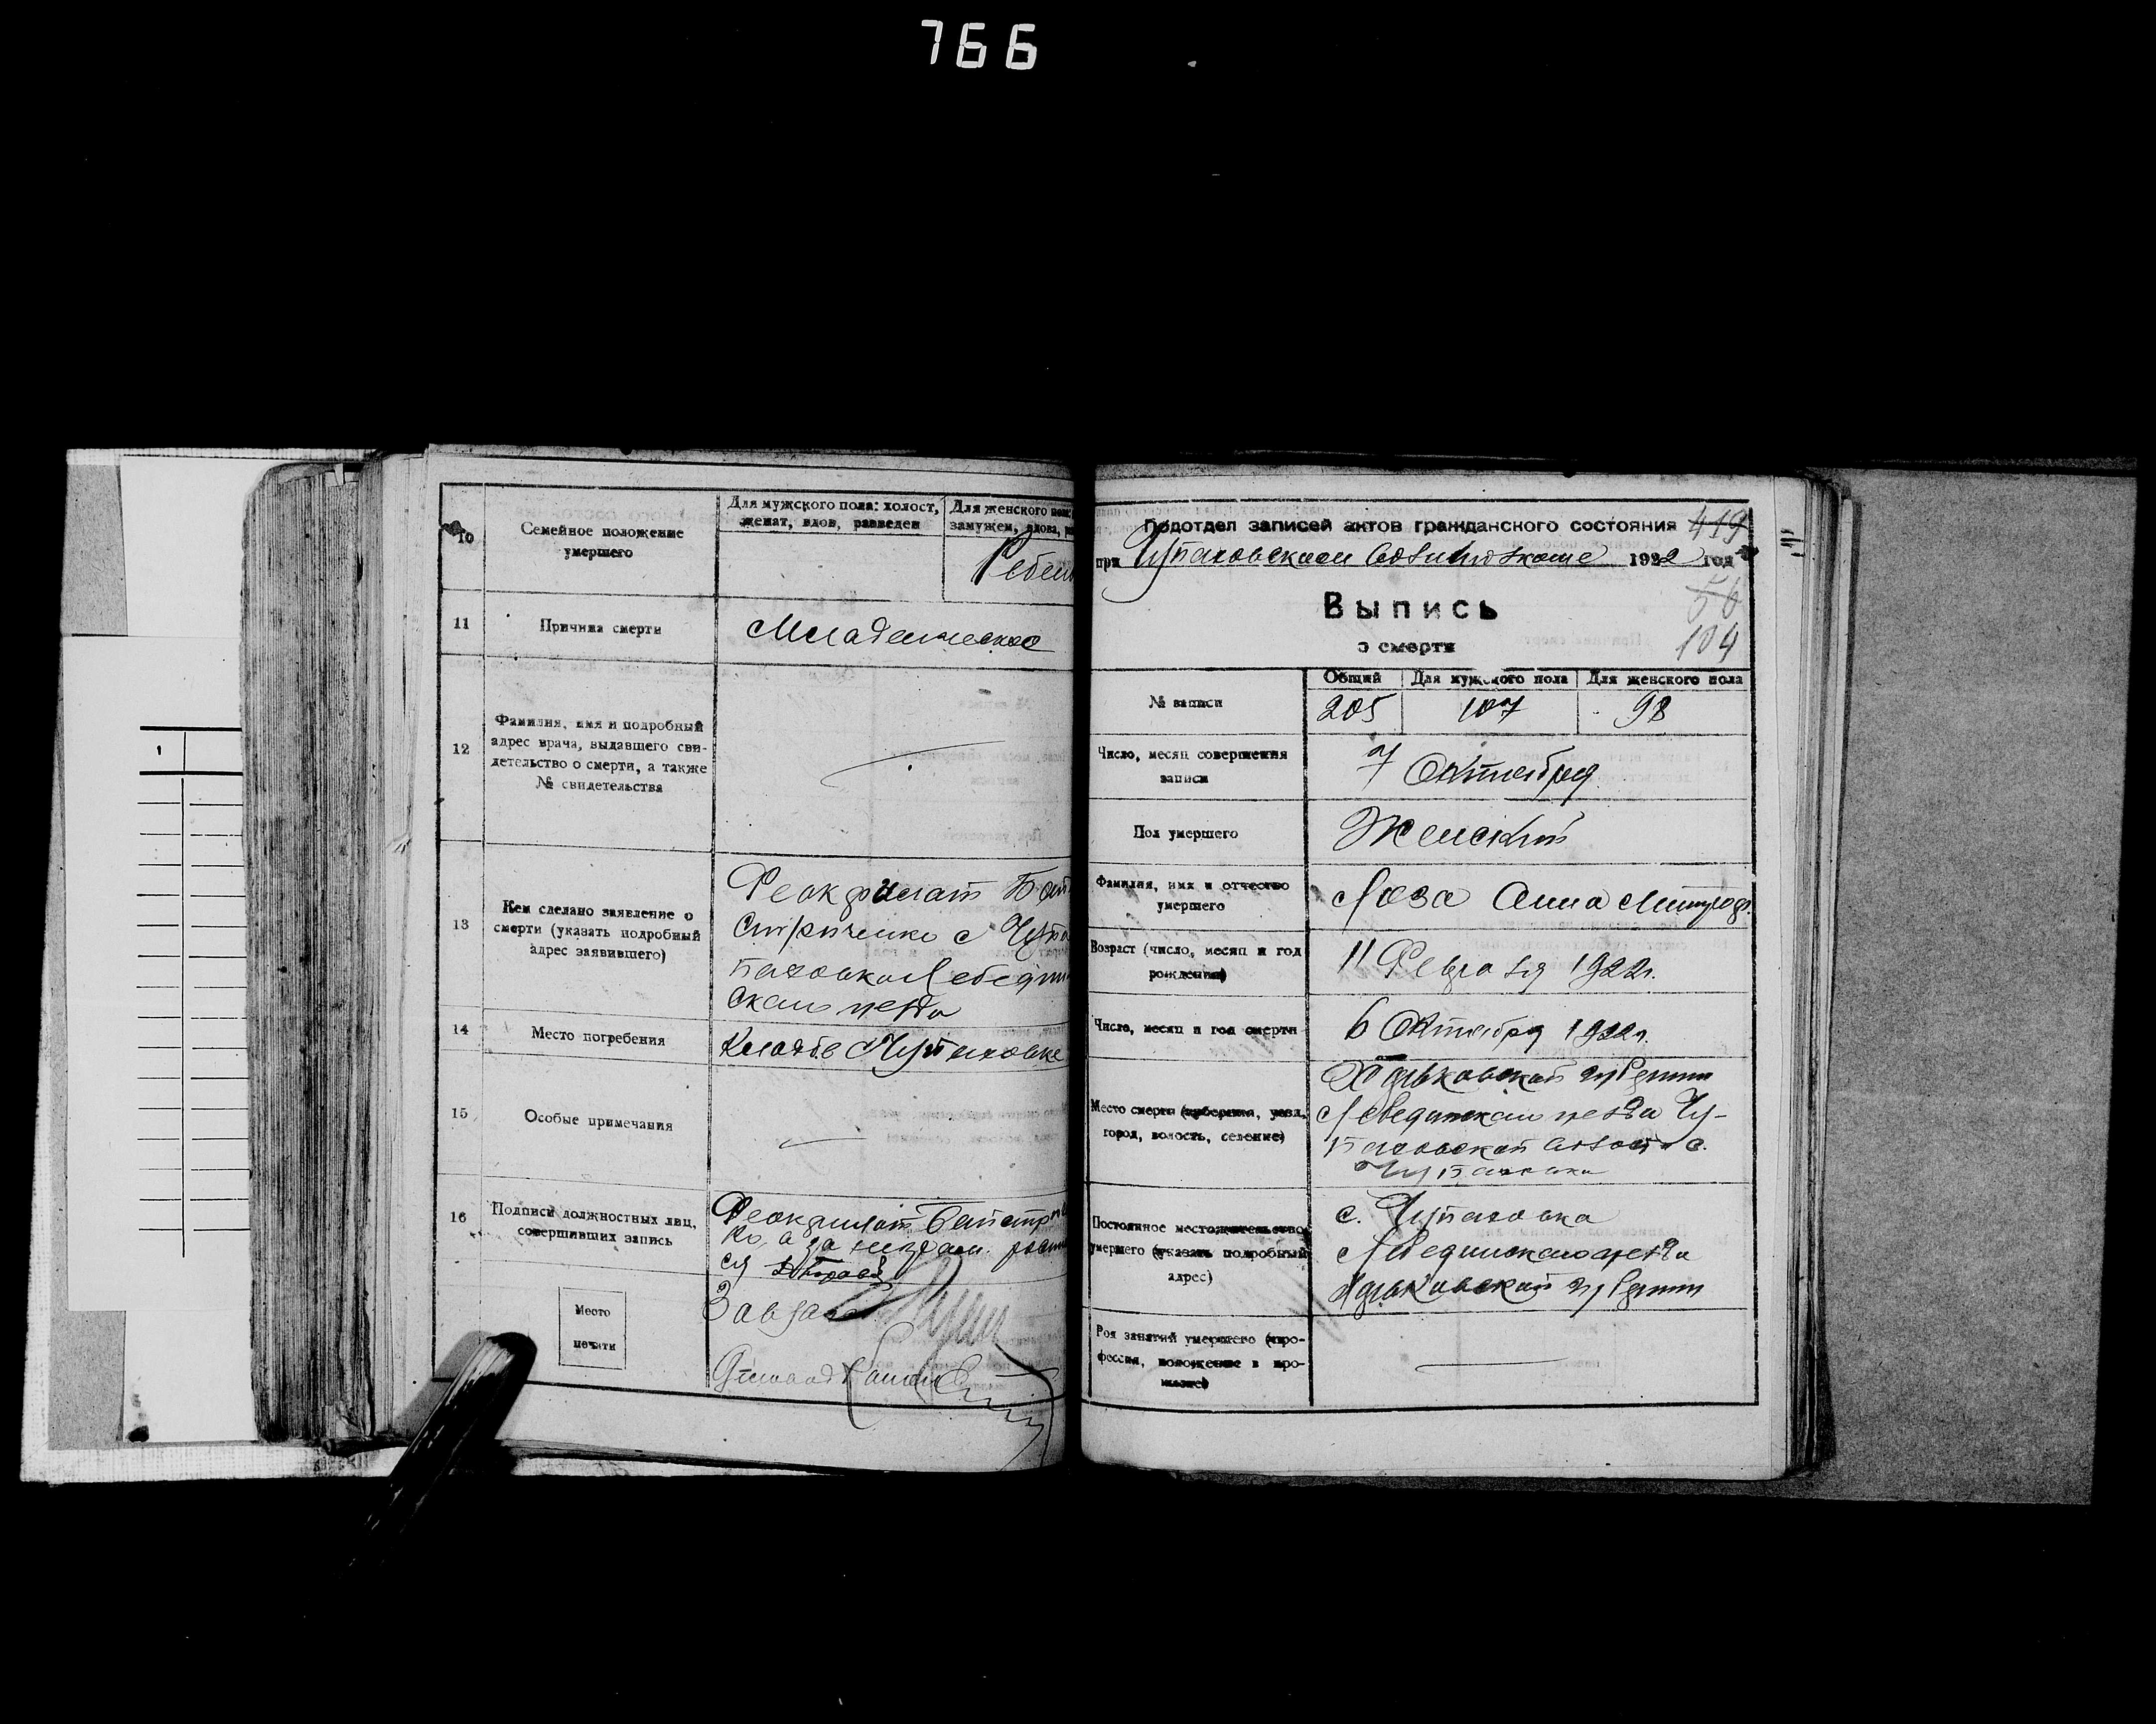 766
10
Семейное положение
умершего
Для мужского пола: холост,
женат, вдов, разведен
Для женского пола:
замужем, вдова,
Ребен
11
Причина смерти
Младенческое
12
Фамилия, имя и подробный
адрес врача, выдавшего сви-
детельство о смерти, а также
№ свидетельства
13
Кем сделано заявление о
смерти (указать подробный
адрес заявившего)
14
Место погребения
Чупаховке
15
Особые примечания
16
Подписи должностных лиц,
совершивших запись
Место
печати
1
Подотдел записей актов гражданского состояния 419
при Чупаховском 1922 год
56
104
Выпись
о смерти
№ записи
Общий
Для мужского пола
Для женского пола
205
107
98
Число, месяц совершения
записи
7 Октября
Пол умершего
Женский
Фамилия, имя и отчество
умершего
Лоза Анна Митроф.
Возраст (число, месяц и год
рождения)
11 Февраля 1922г.
Число, месяц и год смерти
6 Октября 1922г.
Место смерти (губерния, уезд,
город, волость, селение)
Харьковской губернии
Лебединского уезда Чу-
паховской волости с.
Чупаховки
Постоянное местожительство
умершего (указать подробный
адрес)
с. Чупаховка
Лебединского уезда
Харьковской губернии
Род занятий умершего (про-
фессия, положение в про-
мысле)